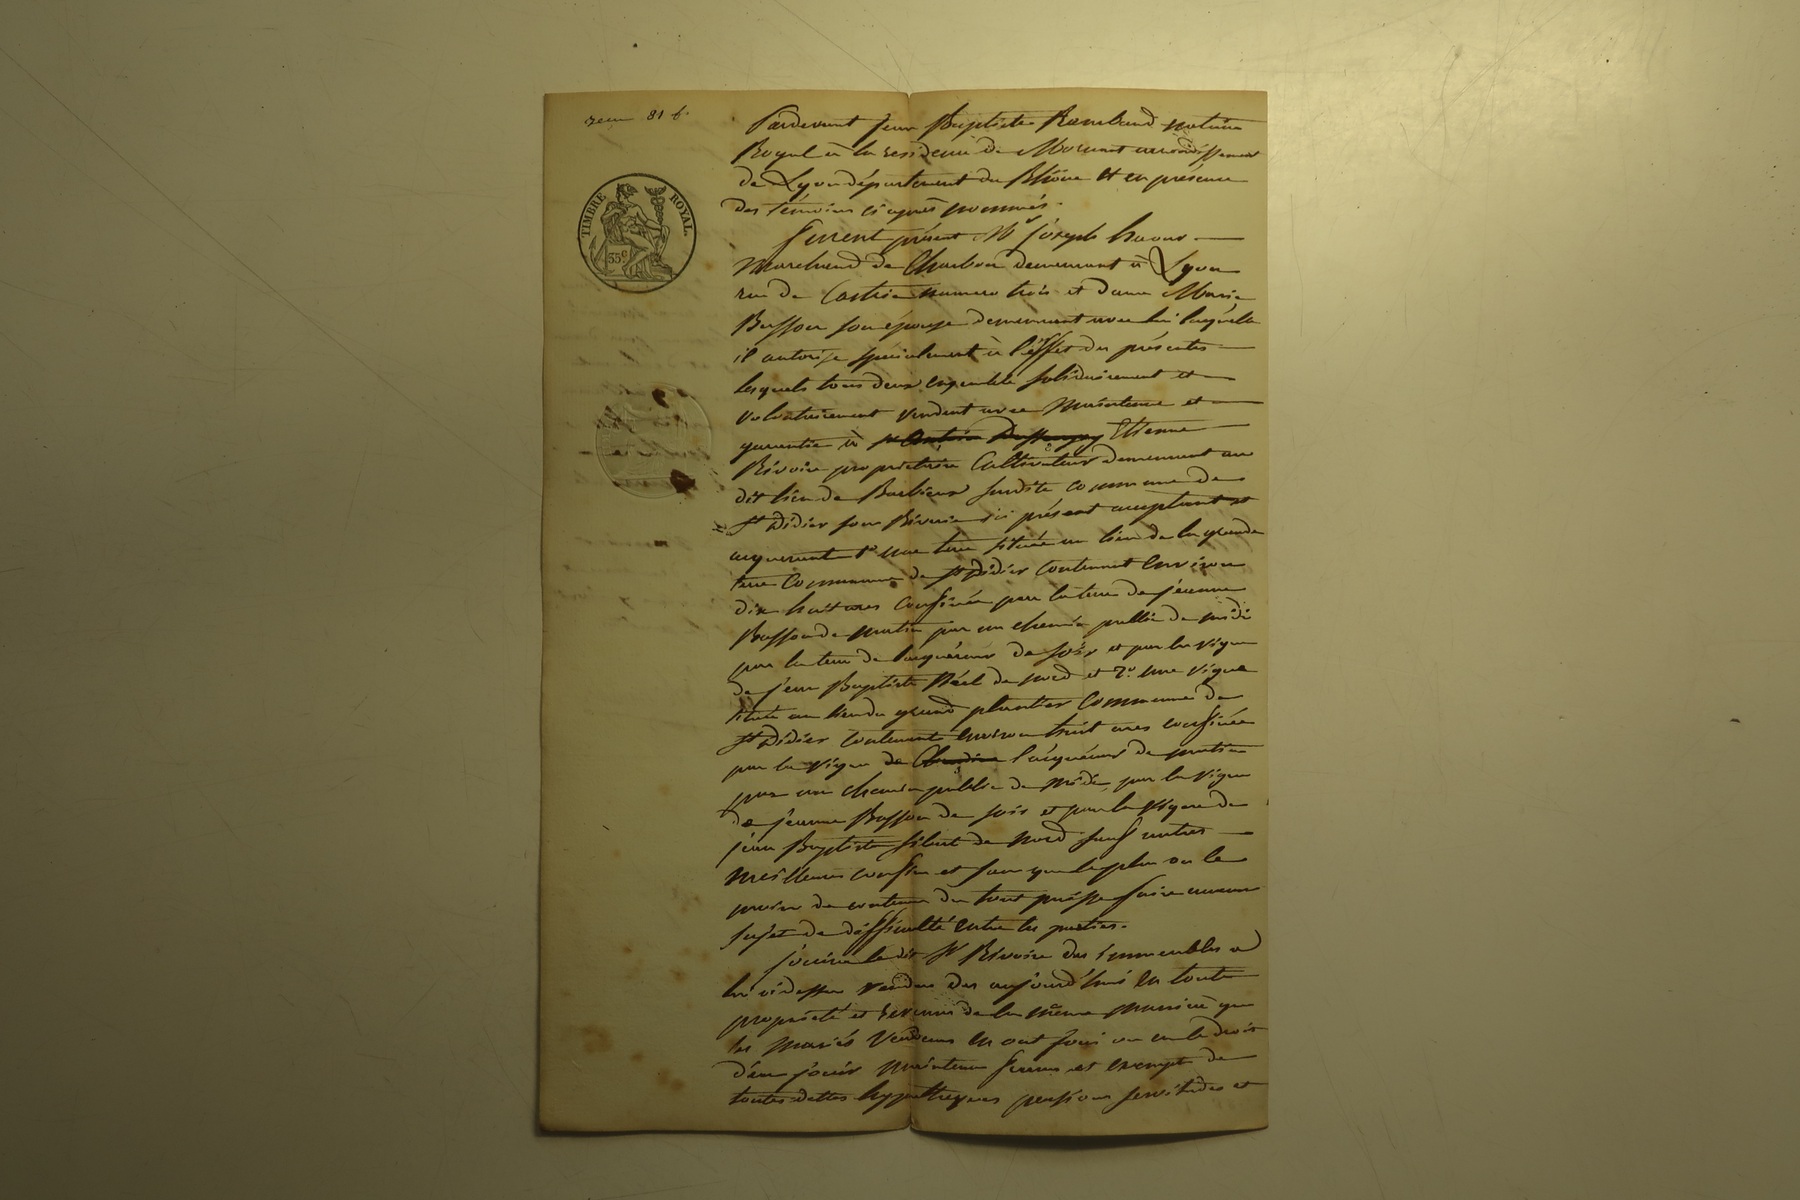 81 f.
TIMBRE ROYAL.
35c
Pardevant Jean Baptiste Rambaud notaire
Royal à la residence de Mornant arrondissement
de Lyon département du Rhône et en présence
des témoins ci après nommés.
furent présent Mr joseph
Marchand de Charbon demeurant à Lyon
rue de Castrie numero trois et dame Marie
Basson son épouse demeurant avec lui laquelle
il autorise specialement à l'effet des présentes
lesquels tous deux ensemble solidairement et
volontairement vendent avec Maintenue et
garantie à sr Antoine Etienne
Rivoire propriétaire Cultivateur demeurant au
dit lieu de Barbieux susdite commune de
St Didier sous Riverie ici présent acceptant et
acquerant 1o une terre située au lieu de la grande
terre Commune de St Didier Contenant environ
dix huit ares confinée par la terre de jeanne
Basson de matin par un chemin public de midi
par la terre de l'acquéreur de soir et par la vigne
de jean Baptiste de nord et 2o une vigne
située au lieu du grand plantier Commune de
St Didier Contenant environ huit ares confinée
par la vigne de Claudine l'acquéreur de matin
par un chemin public de Midi, par la vigne
de jeanne Basson de soir et par la vigne de
jean Baptiste de Nord sauf autres
meilleurs confins et sans que le plus ou le
moins de contenu du tout puisse faire aucun
sujet de difficulté entre les parties.
jouira le dit Sr Rivoire des immeubles a
lui ci dessus vendus des aujourd'hui en toute
propriété et revenus de la même manière que
les mariés Vendeurs en ont joui ou eu le droit
d'en jouir maintenu francs et exempts de
toutes dettes hypothèques pensions servitudes et